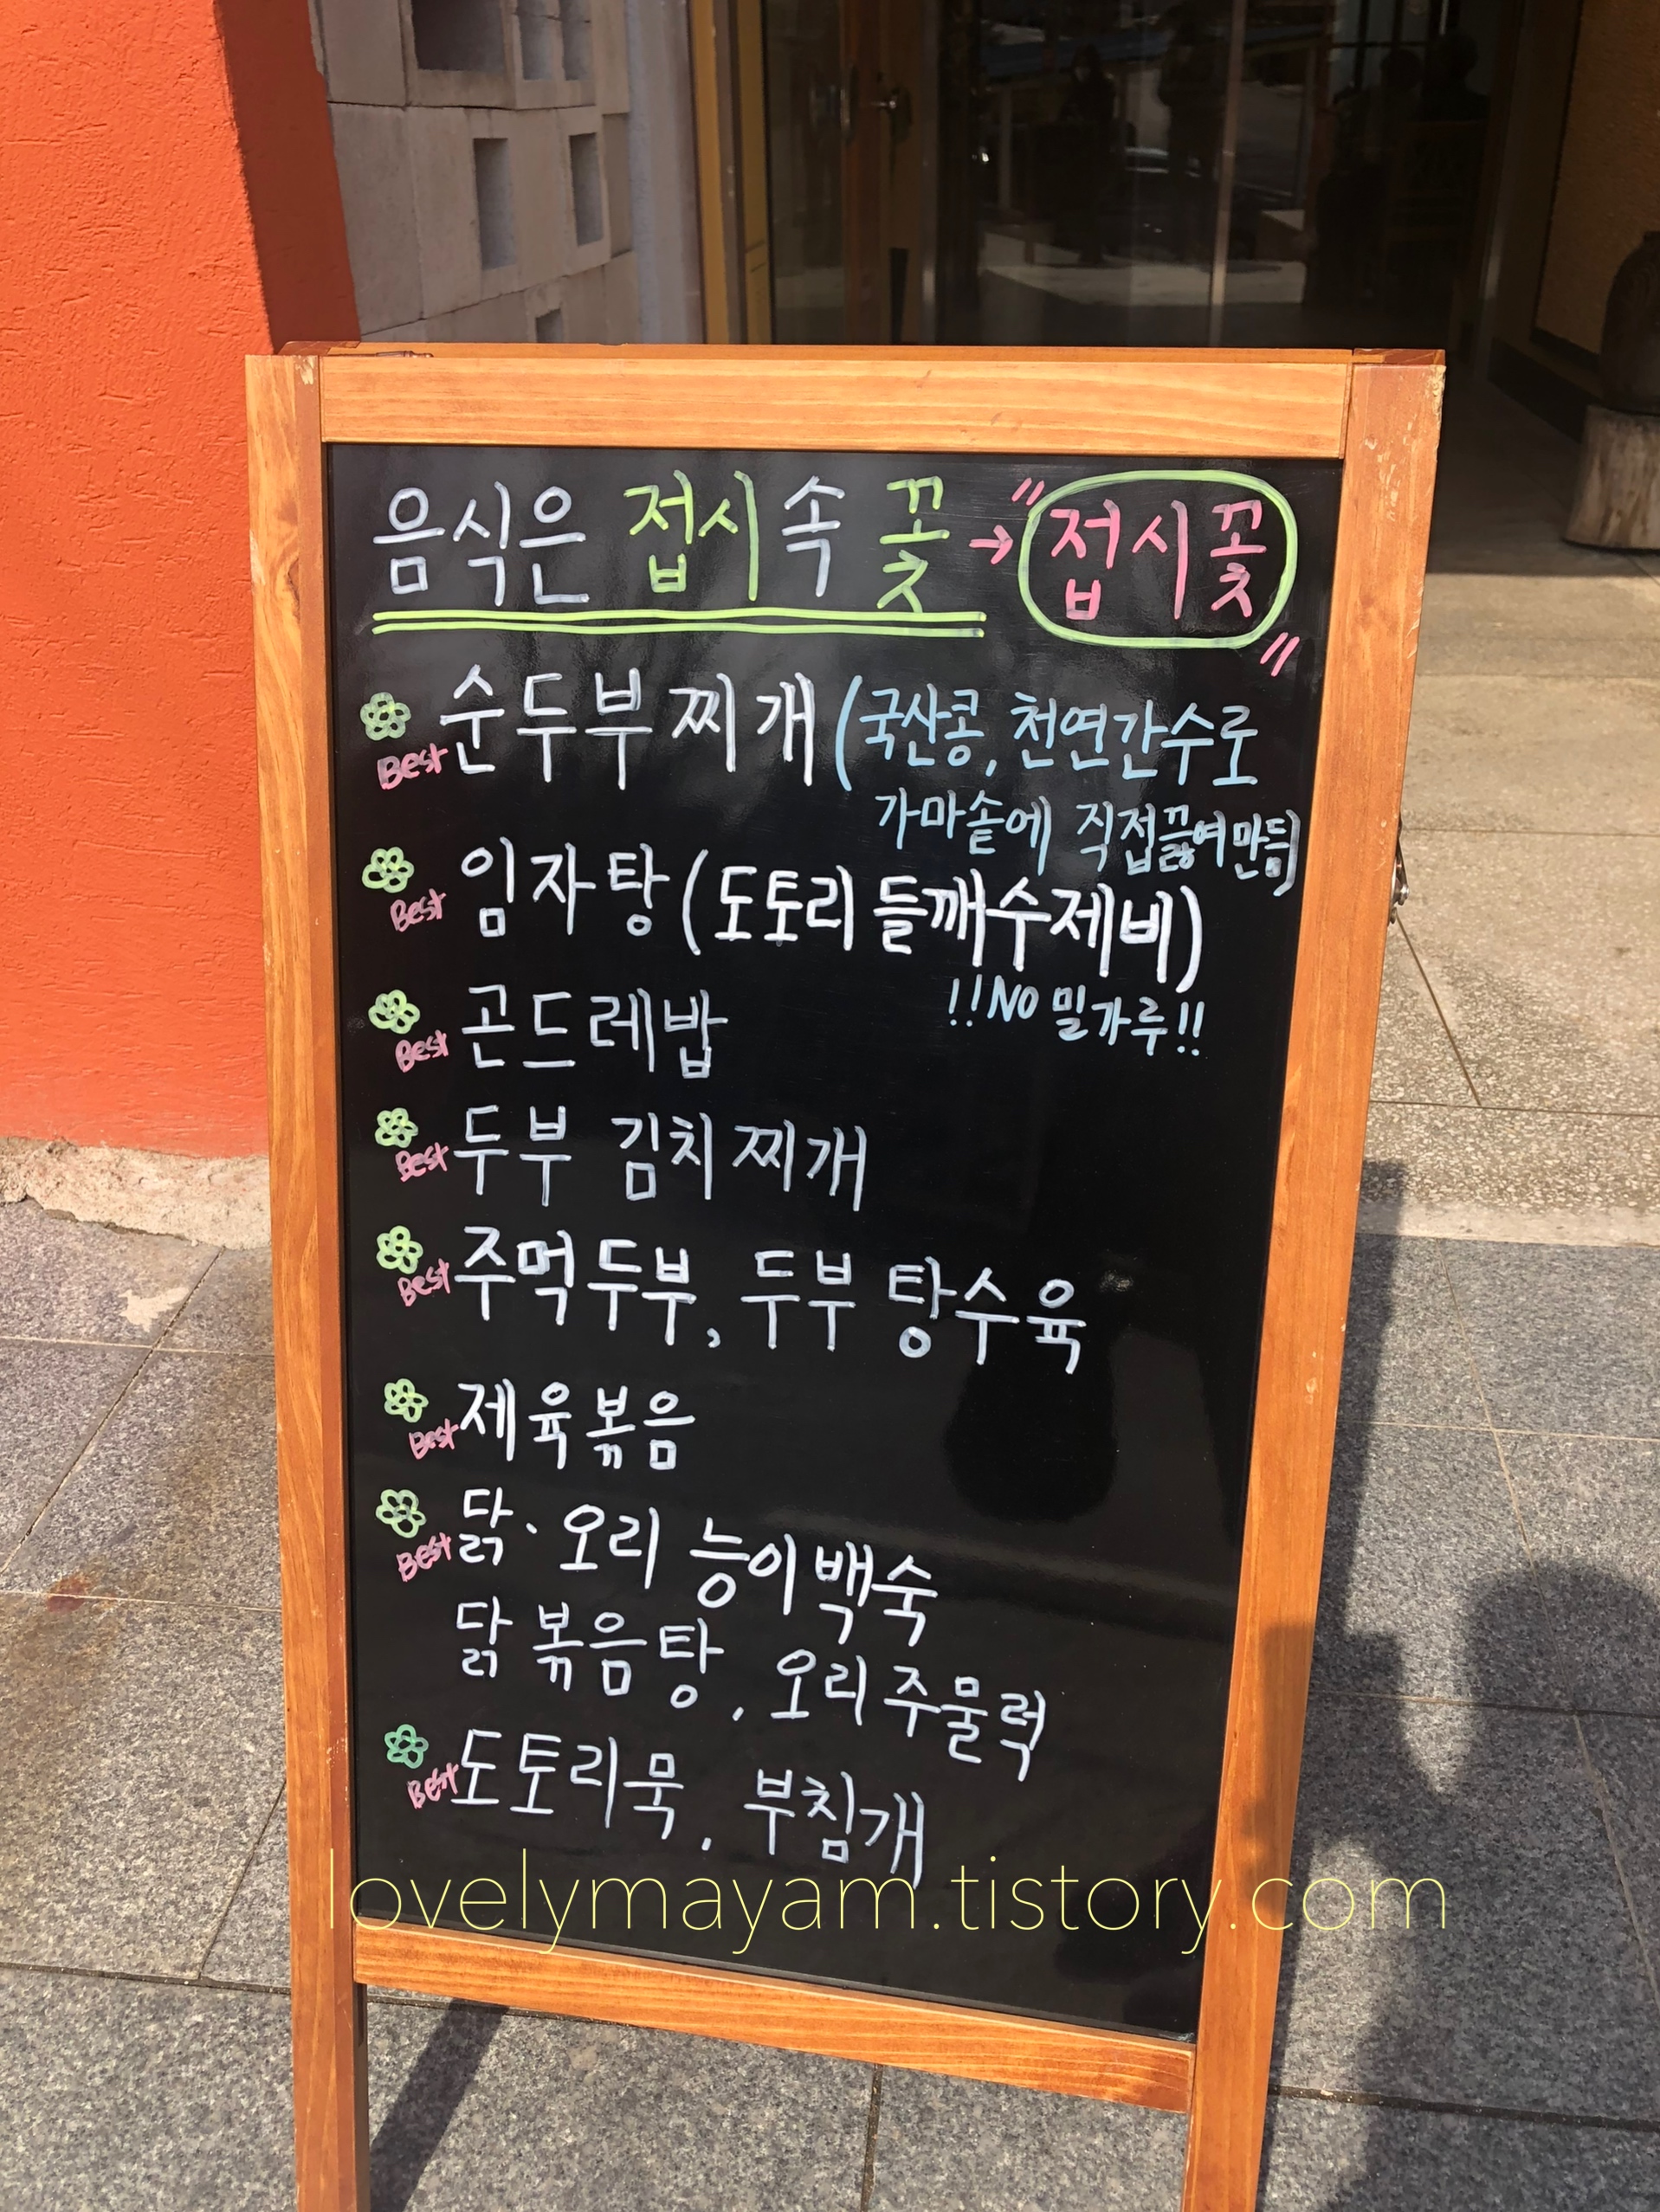 음식은 접시 속 꽃 → "접시꽃"
Best 순두부찌개 (국산콩, 천연간수로
가마솥에 직접끓여만듬)
Best 임자탕 (도토리 들깨수제비)
!!NO 밀가루!!
Best 곤드레밥
Best 두부 김치찌개
Best 주먹두부, 두부 탕수육
Best 제육볶음
Best 닭·오리 능이백숙
닭볶음탕, 오리주물럭
Best 도토리묵, 부침개
lovelymayam.tistory.com